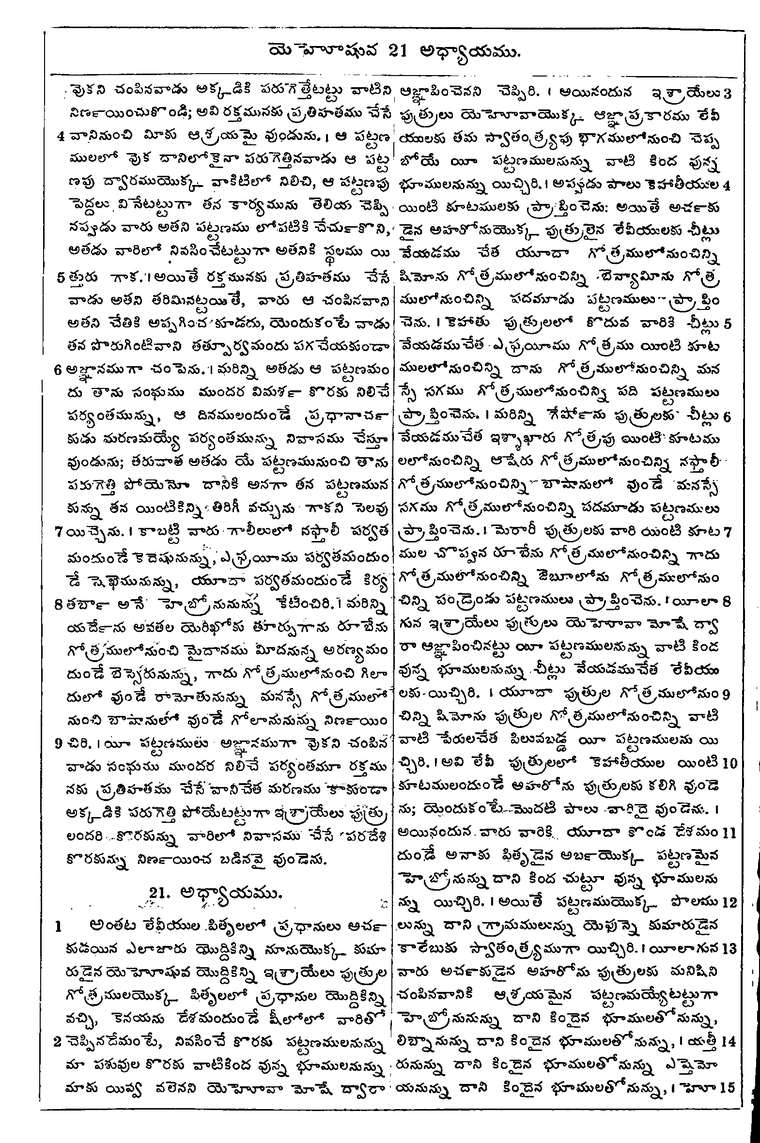 యెహోషువ 21 అధ్యాయము.
వుకని చంపినవాడు అక్కడికి పరుగెత్తేటట్టు వాటిని
నిర్ణయించుకొండి; అవి రక్తమునకు ప్రతిహతము చేసే
4 వానినుంచి మీకు ఆశ్రయమై వుండును. । ఆ పట్టణ
ములలో వుక దానిలోకైనా పరుగెత్తినవాడు ఆ పట్ట
ణపు ద్వారముయొక్క వాకిటిలో నిలిచి, ఆ పట్టణపు
పెద్దలు వినేటట్టుగా తన కార్యమును తెలియ చెప్పి
నప్పుడు వారు అతని పట్టణము లోపటికి చేర్చుకొని,
అతడు వారిలో నివసించేటట్టుగా అతనికి స్థలము యి
5 త్తురు గాక. । అయితే రక్తమునకు ప్రతిహతము చేసే
వాడు అతని తరిమినట్టయితే, వారు ఆ చంపినవాని
అతని చేతికి అప్పగించ కూడదు, యెందుకంటే వాడు
తన పొరుగింటివాని తత్పూర్వమందు పగచేయకుండా
6 అజ్ఞానముగా చంపెను. । మరిన్ని అతడు ఆ పట్టణమం
దు తాను సంఘము ముందర విమర్శ కొరకు నిలిచే
పర్యంతమున్ను, ఆ దినములందుండే ప్రధానార్చ
కుడు మరణమయ్యే పర్యంతమున్ను నివాసము చేస్తూ
వుండును; తరువాత అతడు యే పట్టణమునుంచి తాను
పరుగెత్తి పోయెనో దానికి అనగా తన పట్టణమున
కున్ను తన యింటికిన్ని తిరిగీ వచ్చును గాకని సెలవు
7 యిచ్చెను. । కాబట్టి వారు గాలీలులో నఫ్తాలీ పర్వత
మందుండే కెదెషునున్ను, ఎఫ్రయీము పర్వతమందుం
డే షెఖెమునున్ను, యూదా పర్వతమందుండే కిర్య
8 తర్బా అనే హెబ్రోనునున్ను కేటించిరి. । మరిన్ని
యర్దేను అవతల యెరిఖోకు తూర్పుగాను రూబేను
గోత్రములోనుంచి మైదానము మీదనున్న అరణ్యమం
దుండే బెస్సెరునున్ను, గాదు గోత్రములోనుంచి గిలా
దులో వుండే రామోతునున్ను మనస్సే గోత్రములో
నుంచి బాషానులో వుండే గోలానునున్ను నిర్ణయిం
9 చిరి. । యీ పట్టణములు అజ్ఞానముగా వుకని చంపిన
వాడు సంఘము ముందర నిలిచే పర్యంతమూ రక్తము
నకు ప్రతిహతము చేసే వానిచేత మరణము కాకుండా
అక్కడికి పరుగెత్తి పోయేటట్టుగా ఇశ్రాయేలు పుత్రు
లందరి కొరకున్ను వారిలో నివాసము చేసే పరదేశి
కొరకున్ను నిర్ణయించ బడినవై వుండెను.
21. అధ్యాయము.
1 అంతట లేవీయుల పితృలలో ప్రధానులు అర్చ
కుడయిన ఎలాజారు యొద్దికిన్ని నూనుయొక్క కుమా
రుడైన యెహోషువ యొద్దికిన్ని ఇశ్రాయేలు పుత్రుల
గోత్రములయొక్క పితృలలో ప్రధానుల యొద్దికిన్ని
వచ్చి, కెనయను దేశమందుండే షీలోలో వారితో
2 చెప్పినదేమంటే, నివసించే కొరకు పట్టణములనున్ను
మా పశువుల కొరకు వాటికింద వున్న భూములనున్ను
మాకు యివ్వ వలెనని యెహోవా మోషే ద్వారా
ఆజ్ఞాపించెనని చెప్పిరి. । అయినందున ఇశ్రాయేలు 3
పుత్రులు యెహోవాయొక్క ఆజ్ఞా ప్రకారము లేవీ
యులకు తమ స్వాతంత్ర్యపు భాగములోనుంచి చెప్ప
బోయే యీ పట్టణములనున్ను వాటి కింద వున్న
భూములనున్ను యిచ్చిరి. । అప్పుడు పాలు కెహాతీయుల 4
యింటి కూటములకు ప్రాప్తించెను: అయితే అర్చకు
డైన అహరోనుయొక్క పుత్రులైన లేవీయులకు చీట్లు
వేయడము చేత యూదా గోత్రములోనుంచిన్ని
షిమోను గోత్రములోనుంచిన్ని బెన్యామీను గోత్ర
ములోనుంచిన్ని పదమూడు పట్టణములు ప్రాప్తిం
చెను. । కెహాతు పుత్రులలో కొదువ వారికి చీట్లు 5
వేయడముచేత ఎఫ్రయీము గోత్రము యింటి కూట
ములలోనుంచిన్ని దాను గోత్రములోనుంచిన్ని మన
స్సే సగము గోత్రములోనుంచిన్ని పది పట్టణములు
ప్రాప్తించెను. । మరిన్ని గేర్షోను పుత్రులకు చీట్లు 6
వేయడముచేత ఇశ్శాఖారు గోత్రపు యింటి కూటము
లలోనుంచిన్ని ఆషేరు గోత్రములోనుంచిన్ని నఫ్తాలీ
గోత్రములోనుంచిన్ని బాషానులో వుండే మనస్సే
సగము గోత్రములోనుంచిన్ని పదమూడు పట్టణములు
ప్రాప్తించెను. । మెరారీ పుత్రులకు వారి యింటి కూట 7
ముల చొప్పున రూబేను గోత్రములోనుంచిన్ని గాదు
గోత్రములోనుంచిన్ని జెబూలోను గోత్రములోనుం
చిన్ని పండ్రెండు పట్టణములు ప్రాప్తించెను. । యీలా 8
గున ఇశ్రాయేలు పుత్రులు యెహోవా మోషే ద్వా
రా ఆజ్ఞాపించినట్టు యీ పట్టణములనున్ను వాటి కింద
వున్న భూములనున్ను చీట్లు వేయడముచేత లేవీయు
లకు యిచ్చిరి. । యూదా పుత్రుల గోత్రములోనుం 9
చిన్ని షిమోను పుత్రుల గోత్రములోనుంచిన్ని వాటి
వాటి పేరులచేత పిలువబడ్డ యీ పట్టణములను యి
చ్చిరి. । అవి లేవీ పుత్రులలో కెహాతీయుల యింటి 10
కూటములందుండే అహరోను పుత్రులకు కలిగి వుండె
ను; యెందుకంటే మొదటి పాలు వారిదై వుండెను. ।
అయినందున వారు వారికి యూదా కొండ దేశమం 11
దుండే అనాకు పితృడైన అర్బయొక్క పట్టణమైన
హెబ్రోనున్ను దాని కింద చుట్టూ వున్న భూములను
న్ను యిచ్చిరి. । అయితే పట్టణముయొక్క పొలము 12
లున్ను దాని గ్రామములున్ను యెఫున్నె కుమారుడైన
కాలేబుకు స్వాతంత్ర్యముగా యిచ్చిరి. । యీలాగున 13
వారు అర్చకుడైన అహరోను పుత్రులకు మనిషిని
చంపినవానికి ఆశ్రయమైన పట్టణమయ్యేటట్టుగా
హెబ్రోనునున్ను దాని కిందైన భూములతోనున్ను,
లిబ్నానున్ను దాని కిందైన భూములతోనున్ను, । యత్తీ 14
రునున్ను దాని కిందైన భూములతోనున్ను ఎష్తెమో
యనున్ను దాని కిందైన భూములతోనున్ను, । హెూ 15